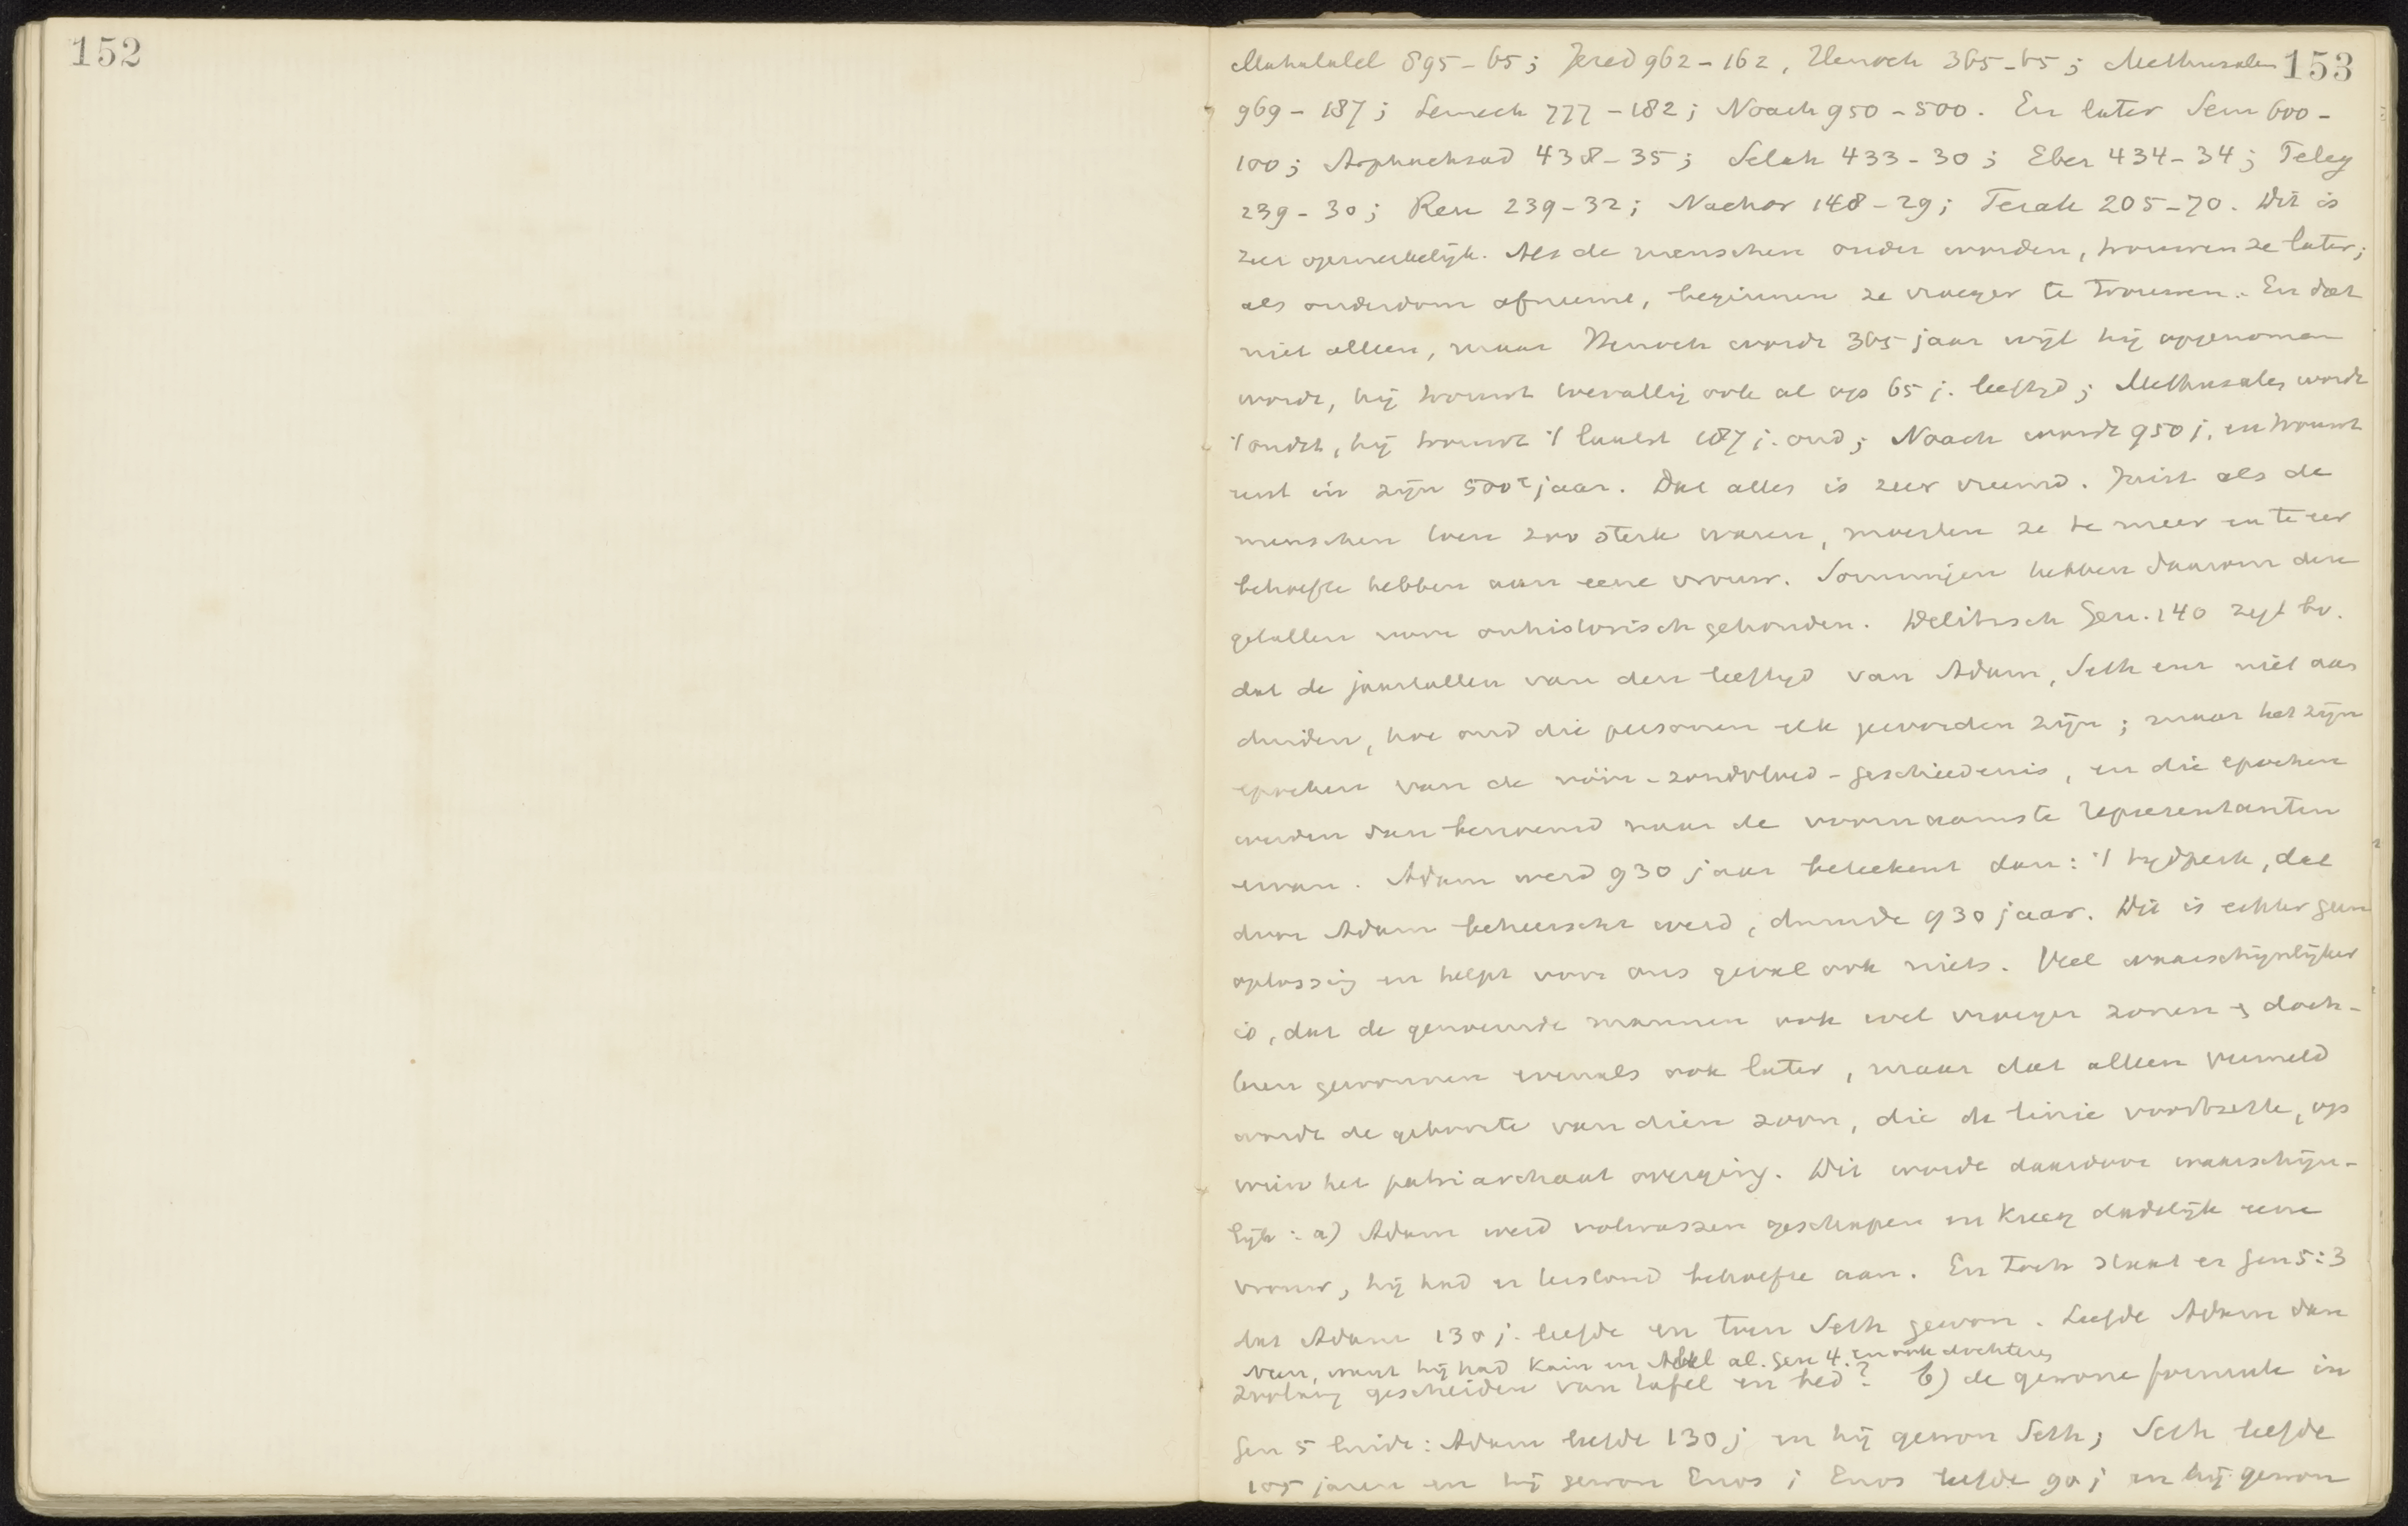 152
153
Mahalalel 895-65; Jered 962-162, Henoch 365-65; Methusalem
969-187; Lemech 777-182; Noach 950-500. En later Sem 600-
100; Arphachsad 438-35; Selah 433-30; Eber 434-34; Peleg
239-30; Reu 239-32; Nachor 148-29; Terah 205-70. Dit is
zeer opmerkelijk. Als de menschen ouder worden, trouwen ze later;
als ouderdom afneemt, beginnen ze vroeger te trouwen. En dat
niet alleen, maar Henoch wordt 365 jaar wijl hij opgenomen
wordt, hij trouwt toevallig ook al op 65 j. leeftijd; Methusalem wordt
't oudst, hij trouwt 't laatst 187 j. oud; Noach wordt 950 j. en trouwt
eerst in zijn 500e jaar. Dat alles is zeer vreemd. Juist als de
menschen toen zoo sterk waren, moesten ze te meer en te eer
behoefte hebben aan eene vrouw. Sommigen hebben daarom deze
getallen voor onhistorisch gehouden. Delitzsch Gen. 140 zegt bv.
dat de jaartallen van den leeftijd van Adam, Seth enz niet aan
duiden, hoe oud die personen elk geworden zijn; maar het zijn
epochen van de vóór-zondvloed-geschiedenis, en die epochen
werden dan benoemd naar de voornaamste representanten
ervan. Adam werd 930 jaar beteekent dan: 't tijdperk, dat
door Adam beheerscht werd, duurde 930 jaar. Dit is echter geen
oplossing en helpt voor ons geval ook niets. Veel waarschijnlijker
is, dat de genoemde mannen ook wel vroeger zonen & doch-
ters gewonnen evenals ook later, maar dat alleen vermeld
wordt de geboorte van dien zoon, die de linie voortzette, op
wien het patriarchaat overging. Dit wordt daardoor waarschijn-
lijk: a) Adam werd volwassen geschapen en kreeg dadelijk eene
vrouw, hij had er bestond behoefte aan. En toch staat er Gen 5:3
dat Adam 130 j. leefde en toen Seth gewon. Leefde Adam dan
neen, want hij had Kain en Abel al. Gen 4. en ook dochteren
zoolang gescheiden van tafel en bed? b) de gewone formule in
Gen 5 luidt: Adam leefde 130 j en hij gewon Seth; Seth leefde
105 jaren en hij gewon Enos; Enos leefde 90 j en hij gewon